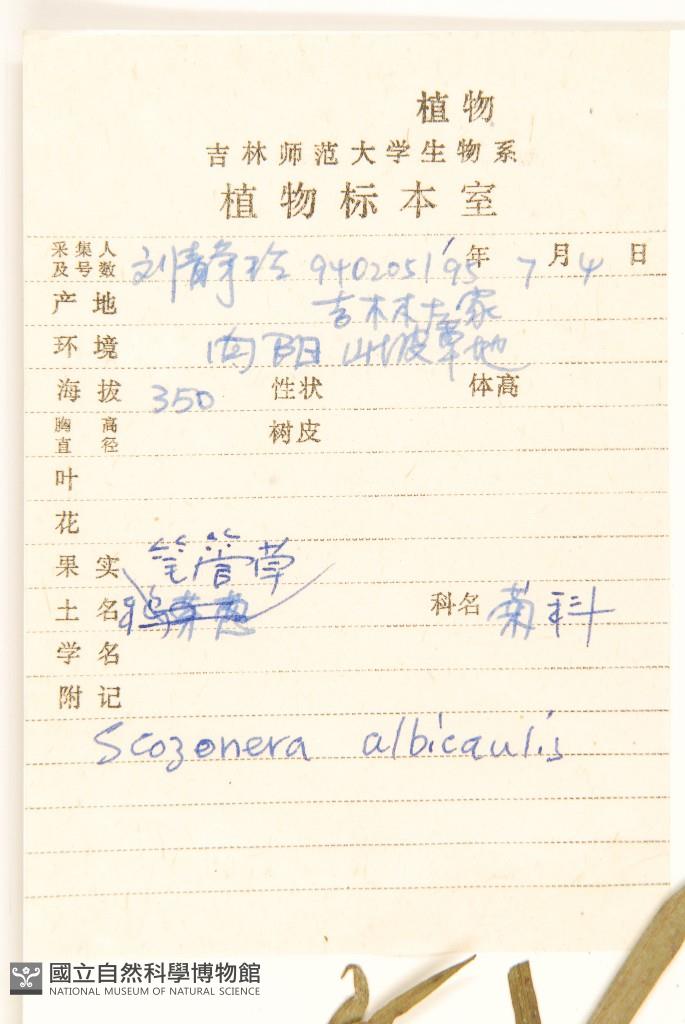 植物
吉林师范大学生物系
植物标本室
采集人及号数 刘静玲 9402051 '95年 7月4日
产地 吉林左家
环境 向阳山坡草地
海拔 350 性状 体高
胸高直径 树皮
叶
花
果实 笔管草
土名 科名 菊科
学名
附记
Scozonera albicaulis
國立自然科學博物館
NATIONAL MUSEUM OF NATURAL SCIENCE